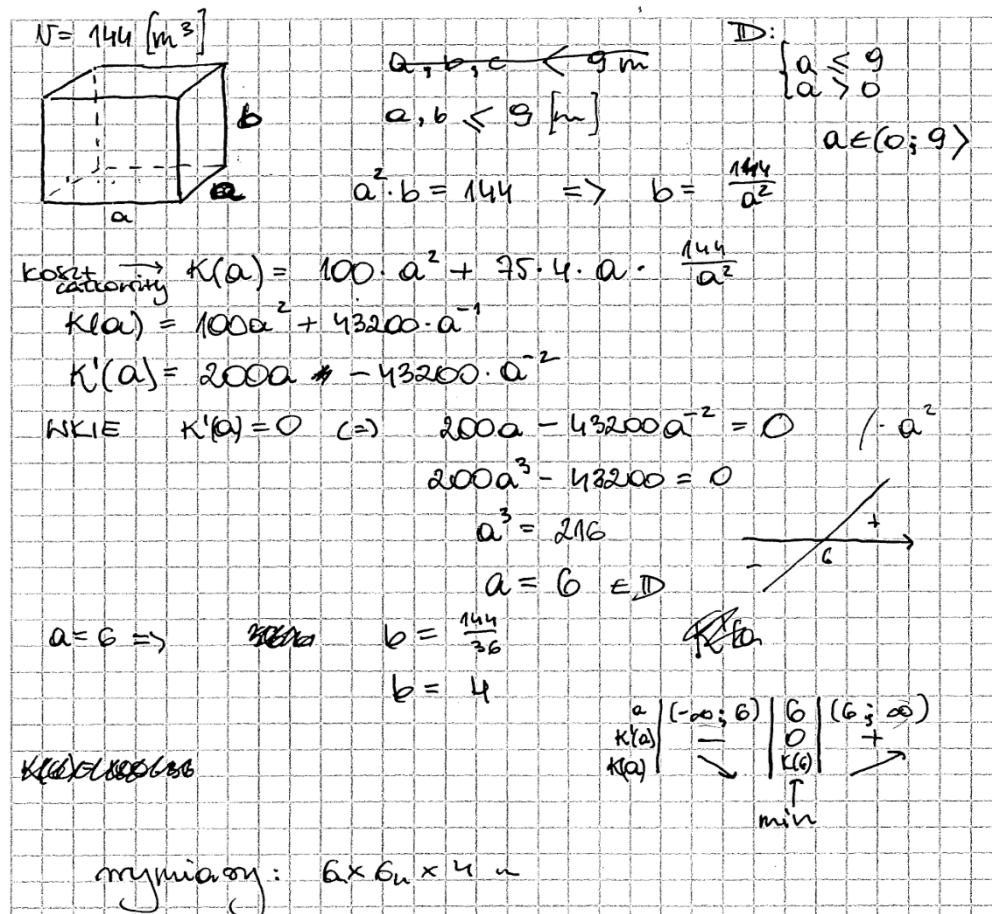 V = 144 [m³]
b
a
a
a, b, c < 9 m
a, b ⩽ 9 [m]
D:
{ a ⩽ 9
{ a > 0
a ∈ (0; 9⟩
a² · b = 144 => b = 144/a²
koszt całkowity → K(a) = 100 · a² + 75 · 4 · a · 144/a²
K(a) = 100a² + 43200 · a⁻¹
K'(a) = 200a - 43200 · a⁻²
WKIE K'(a) = 0 (=) 200a - 43200a⁻² = 0 / · a²
200a³ - 43200 = 0
a³ = 216
a = 6 ∈ D
- 6 +
a = 6 => b = 144/36
b = 4
a | (-∞; 6) | 6 | (6; ∞)
K'(a) | - | 0 | +
K(a) | ↘ | K(6) | ↗
↑
min
wymiary: 6 x 6 x 4